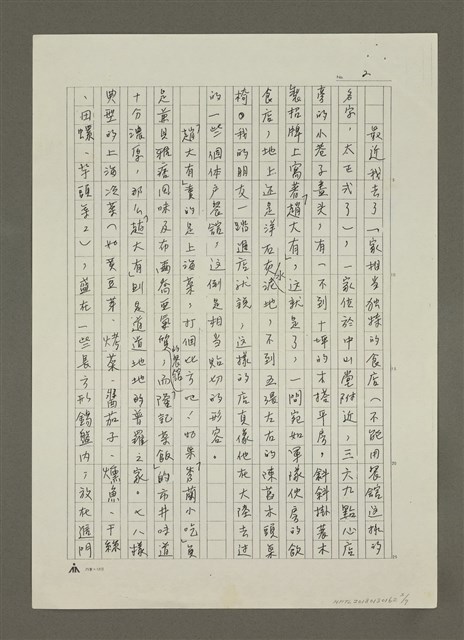 No. 2
最近我去了一家相當独特的食店（不能用餐館這樣的
名字，太正式了），一家位於中山堂附近，三六九點心店
旁的小巷子盡头，有一不到十坪的木搭平房，斜斜掛著木
製招牌上寫著「趙大有」，這就是了，一間宛如軍隊伙房的飲
食店，地上还是洋石灰水泥地，不到五張左右的陳旧木頭菜
椅。我的朋友一踏進店就說，這樣的店真像他在大陸去过
的一些個体户餐館，這倒是相当贴切的形容。
「趙大有」賣的是上海菜，打個比方吧！如果「秀蘭小吃」負
是兼具雅痞回味及布爾喬亞氣質，而「隆記菜飯」的市井味道
的餐館
十分濃厚，那么「趙大有」則是道道地地的普羅之家。七八樣
典型的上海涼菜（如黄豆芽、烤菜、醬茄子、燻魚、干絲
、田螺、芋頭等々），盛在一些長方形錫盤內，放在進門